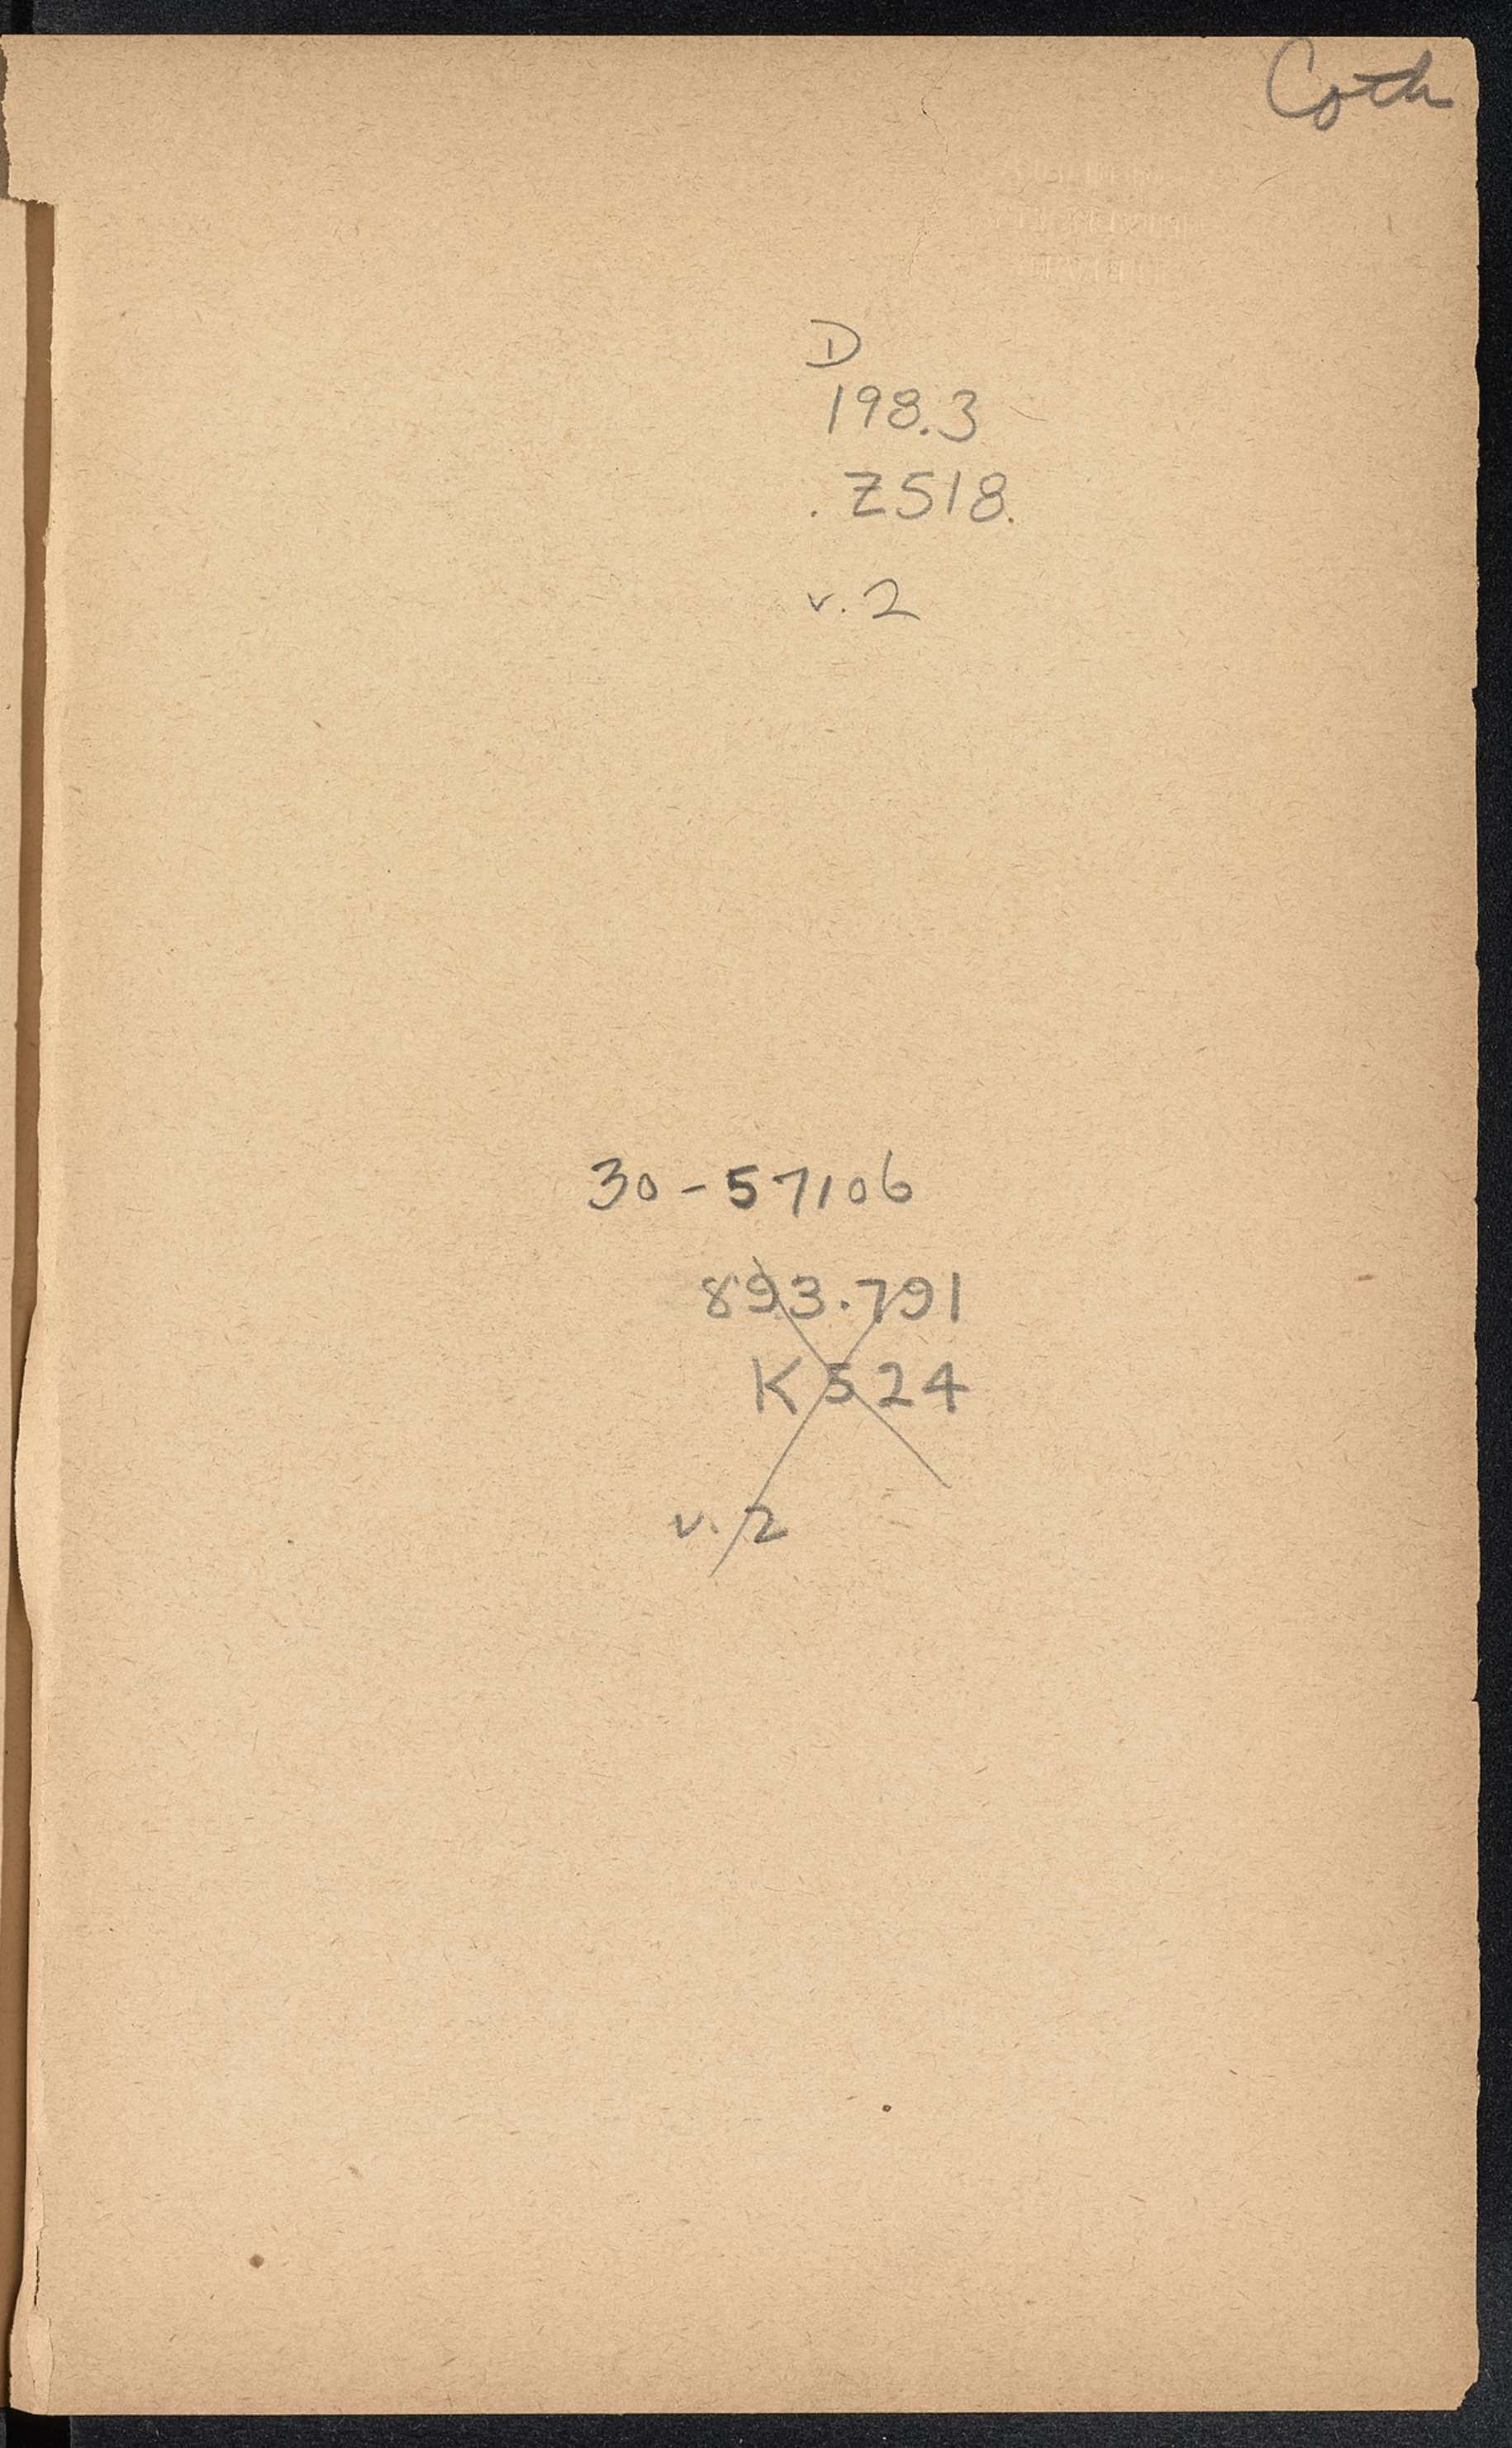 Coth
D
198.3
. Z518.
v. 2
30-57106
893.791
K524
v. 2